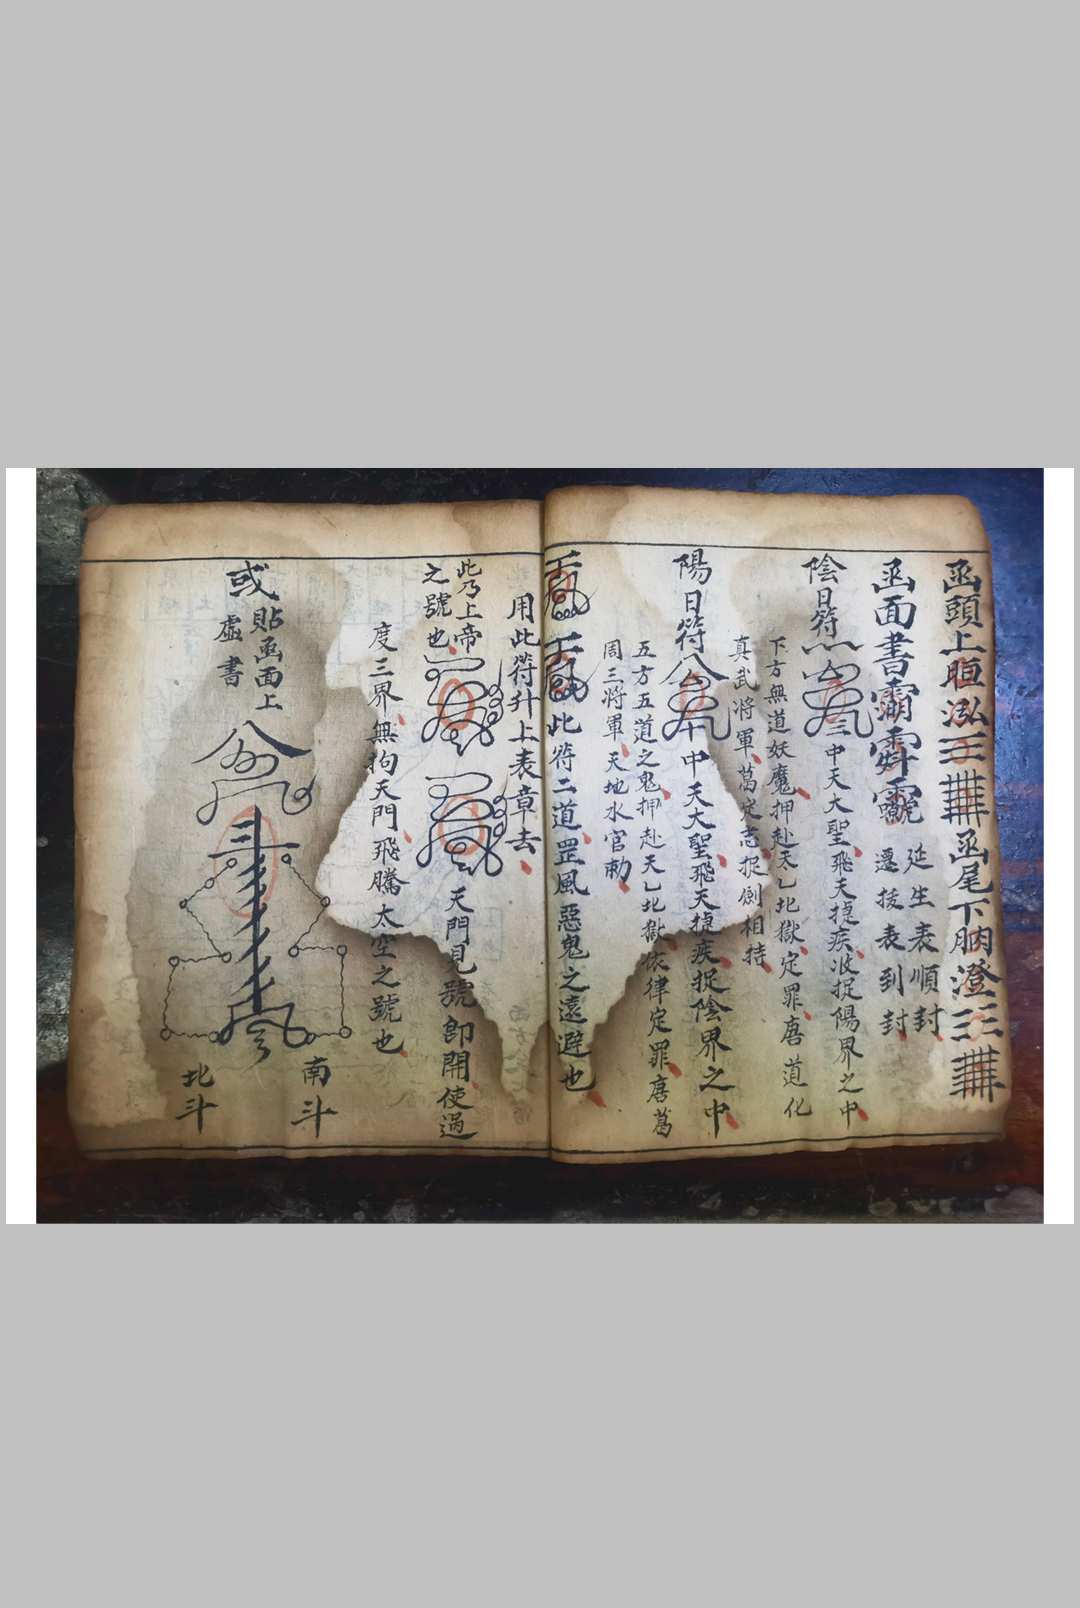 函頭上
函尾下
函面書
延生表順封
遷拔表到封
陰日符
中天大聖飛天捷疾
捉陽界之中
下方無道妖魔押赴天乙北獄定罪唐道化
真武將軍葛定志捉劍相持
陽日符
中天大聖飛天捷疾捉陰界之中
五方五道之鬼押赴天乙北獄依律定罪唐葛
周三將軍天地水官勅
此符二道罡風惡鬼之遠避也
用此符升上表章去
此乃上帝
之號也
天門見號即開使過
度三界無拘天門飛騰太空之號也
或
貼函面上
虛書
南斗
北斗